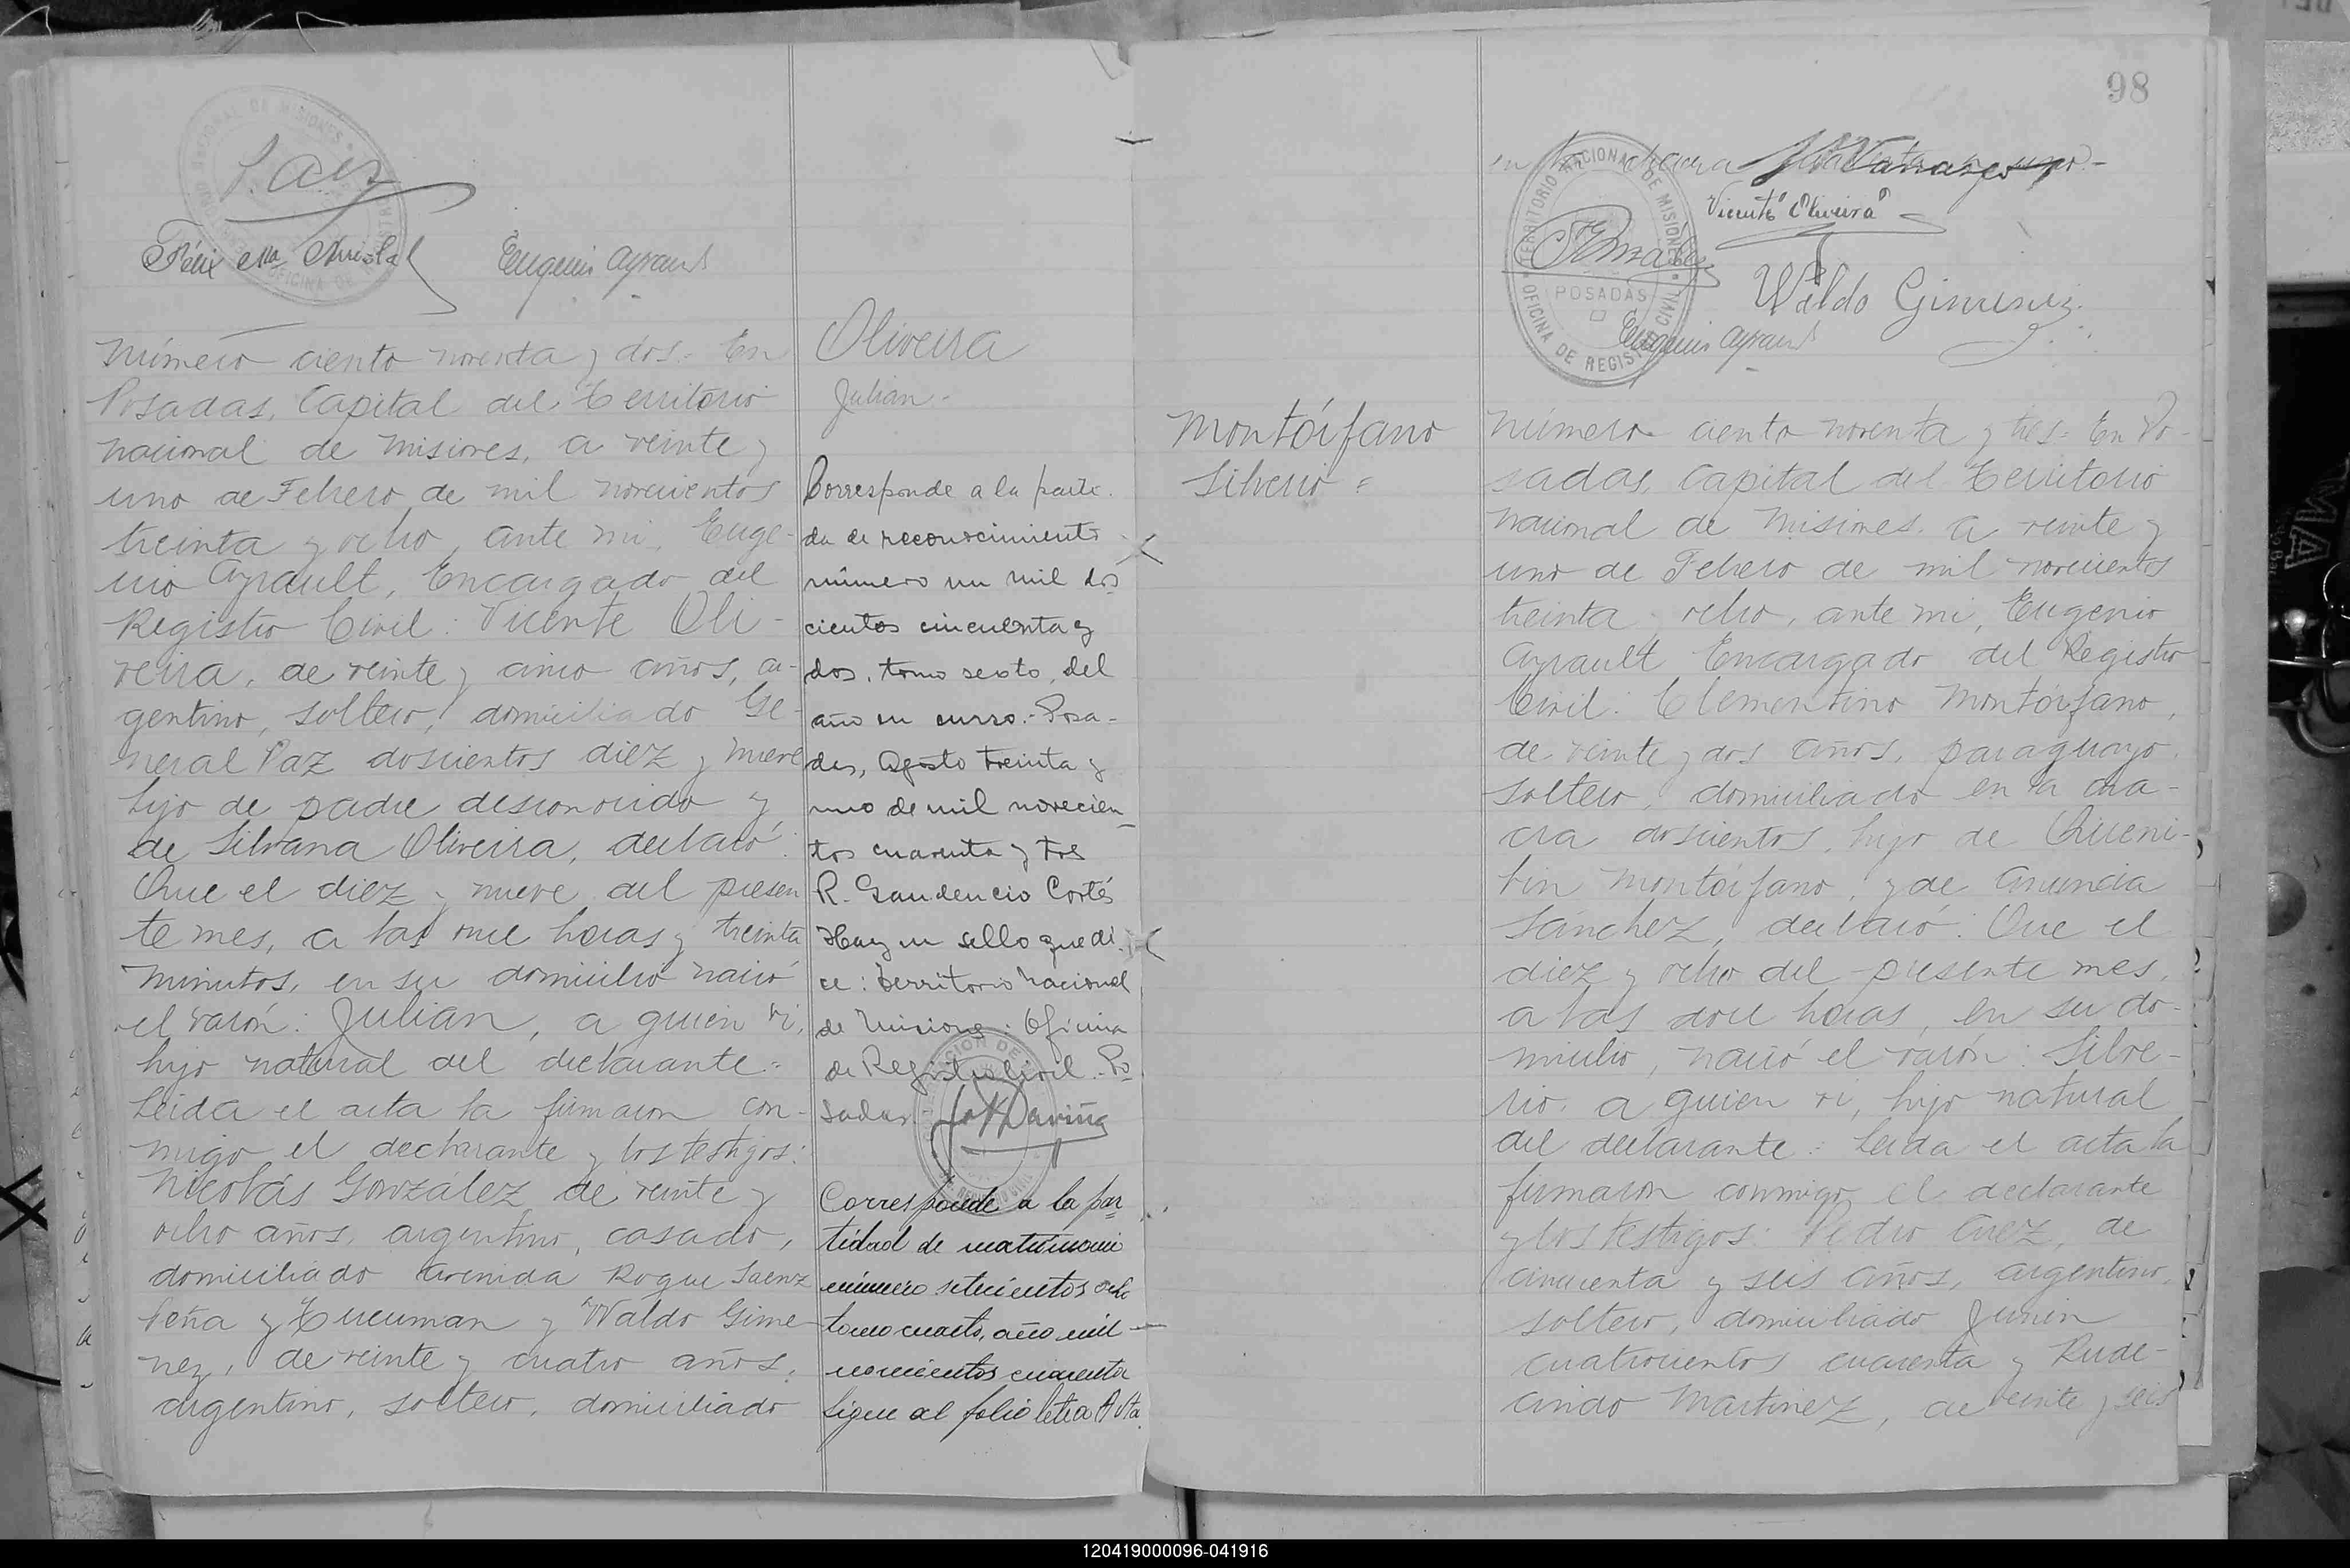 Saez
Félix Ma Arriola
Eugenio Ayrault
Número ciento noventa y dos = En
Posadas, Capital del Territorio
nacional de Misiones, a veinte y
uno de Febrero de mil novecientos
treinta y ocho, ante mi, Euge-
nio Ayrault, Encargado del
Registro Civil: Vicente Oli-
veira, de veinte y cinco años, ar-
gentino, soltero, domiciliado Ge-
neral Paz doscientos diez y nueve
hijo de padre desconocido y
de Silvana Oliveira, declaró:
Que el diez y nueve del presen
te mes, a las once horas y treinta
minutos, en su domicilio nació
el varón: Julian, a quien vi,
hijo natural del declarante =
Leida el acta la firmaron con-
migo el declarante y los testigos:
Nicolás González, de veinte y
ocho años, argentino, casado,
domiciliado Avenida Roque Saenz
Peña y Tucuman y Waldo Gime-
nez, de veinte y cuatro años,
argentino, soltero, domiciliado
Oliveira
Julian -
Corresponde a la parti-
da de reconocimiento
número un mil dos
cientos cincuenta y
dos, tomo sexto, del
año en curso.- Posa-
das, Agosto treinta y
uno de mil novecien-
tos cuarenta y tres
R. Gaudencio Cortés
Hay un sello que di-
ce: Territorio Nacional
de Misiones. Oficina
de Registro Civil. Po-
sadas.
Corresponde a la par
tidad de matrimonio
número setecientos ocho
tomo cuarto, año mil
novecientos cuarenta
Sigue al folio letra A Vta.
98
en la chacra
Vicente Oliveira
TERRITORIO NACIONAL DE MISIONES
POSADAS
OFICINA DE REGISTRO CIVIL
Waldo Gimenez
Eugenio Ayrault
Montórfano
Silverio =
Número ciento noventa y tres = En Po-
sadas, Capital del Territorio
nacional de Misiones, a veinte y
uno de Febrero de mil novecientos
treinta y ocho, ante mi, Eugenio
Ayrault Encargado del Registro
Civil: Clementino Montórfano,
de veinte y dos años, paraguayo,
soltero, domiciliado en la cha-
cra doscientos, hijo de
Montórfano, y de Anuncia
Sánchez, declaró: Que el
diez y ocho del presente mes,
a las doce horas, en su do-
micilio, nació el varón: Silve-
rio, a quien vi, hijo natural
del declarante = Leida el acta la
firmaron conmigo el declarante
y los testigos: Pedro Baez, de
cincuenta y seis años, argentino,
soltero, domiciliado Junin
cuatrocientos cuarenta y Rude-
cindo Martinez, de veinte y seis
120419000096-041916